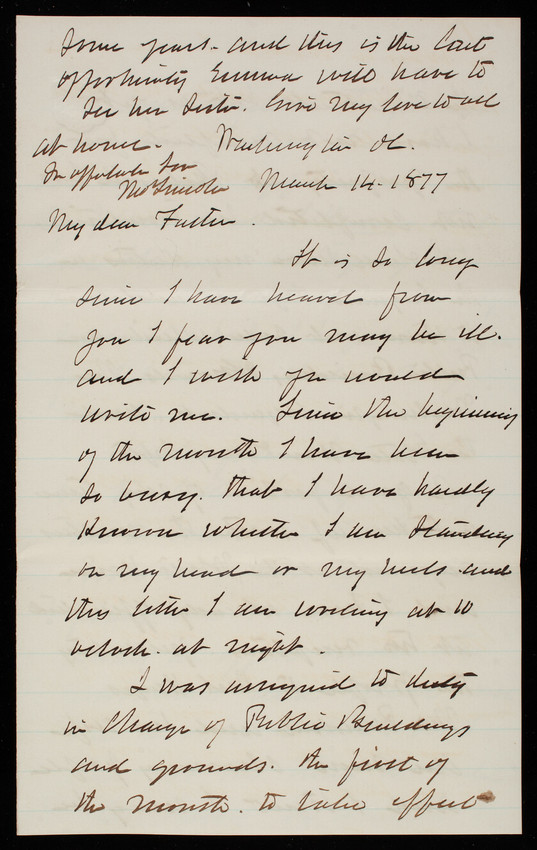 some years. and this is the last
opportunity Emma will have to
see her sister. Give my love to all
at home.
Washington DC.
March 14. 1877
My dear Father.
It is so long
since I have heard from
you I fear you may be ill.
and I wish you would
write me. Since the beginning
of the month I have been
so busy. that I have hardly
known whether I am standing
on my head or my heels and
this letter I am writing at 10
oclock. at night.
I was assigned to duty
in charge of Public Buildings
and grounds. the first of
the month. to take effect